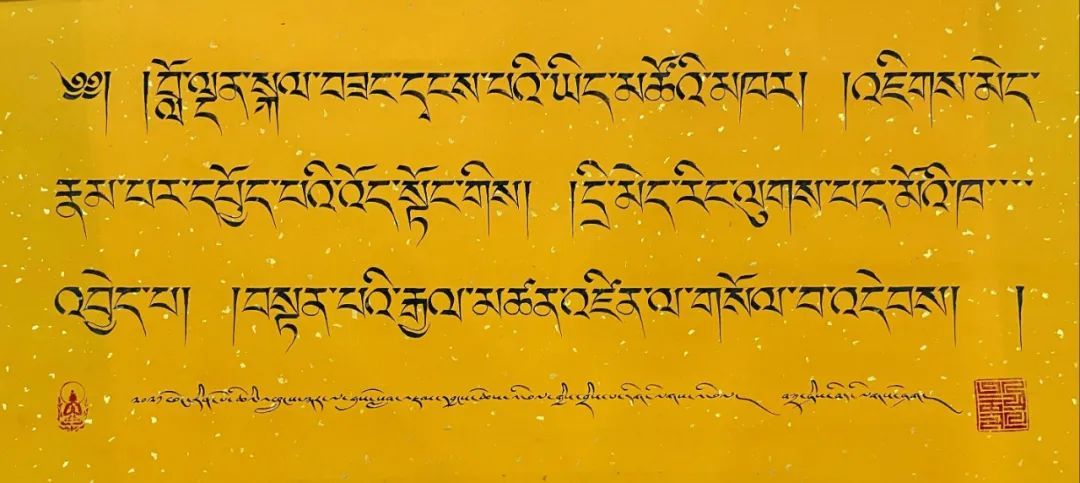 ༄༅། །བློ་ལྡན་སྐལ་བཟང་དྭངས་པའི་ཡིད་མཚོའི་མཁར། །འཇིགས་མེད་
རྣམ་པར་དཔྱོད་པའི་འོད་སྟོང་གིས། །དྲི་མེད་རིང་ལུགས་པད་མོའི་ཁ་་་་
འབྱེད་པ། །བསྟན་པའི་རྒྱལ་མཚན་འཛིན་ལ་གསོལ་བ་འདེབས། །